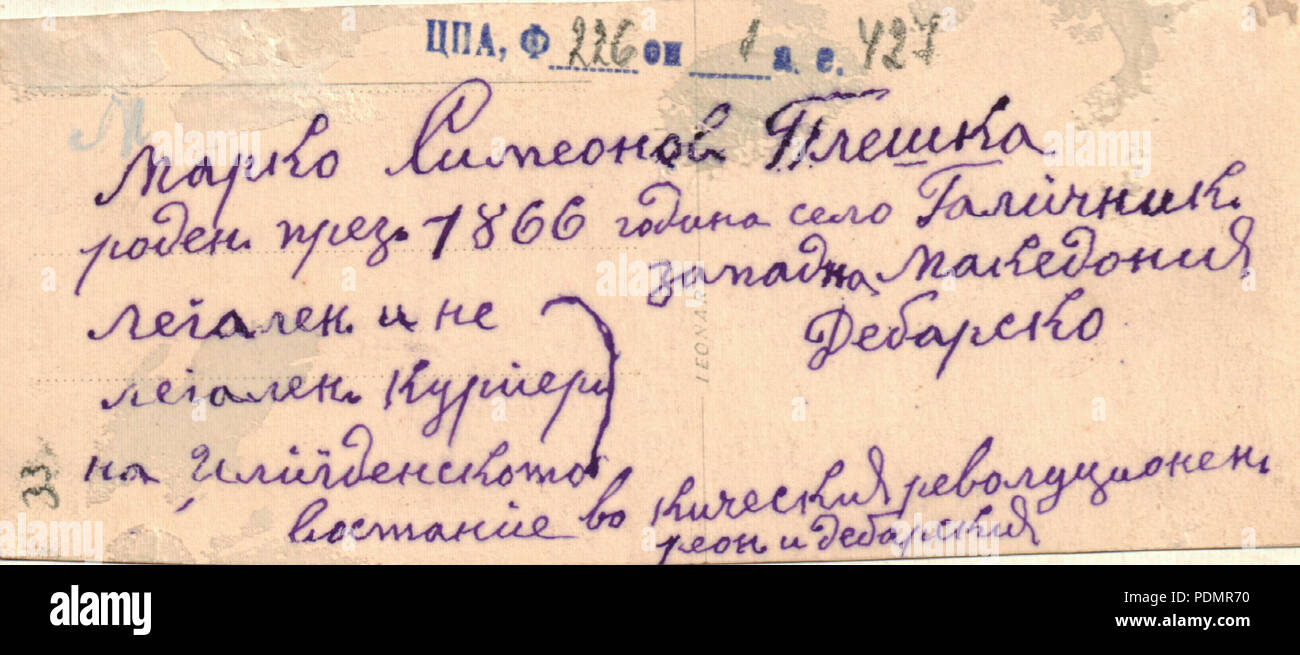 ЦПА, Ф 226 оп 1 а. е. 427
М
Марко Симеонов Плешка
роден. през. 1866 година село Галичник.
западна Македония
Дебарско
легален. и не
легален. Куриер.
на Илiнденското
востание во Кическия революционен.
реон. и дебарския
33
LEONAR
alamy
Image ID: PDMR70
www.alamy.com